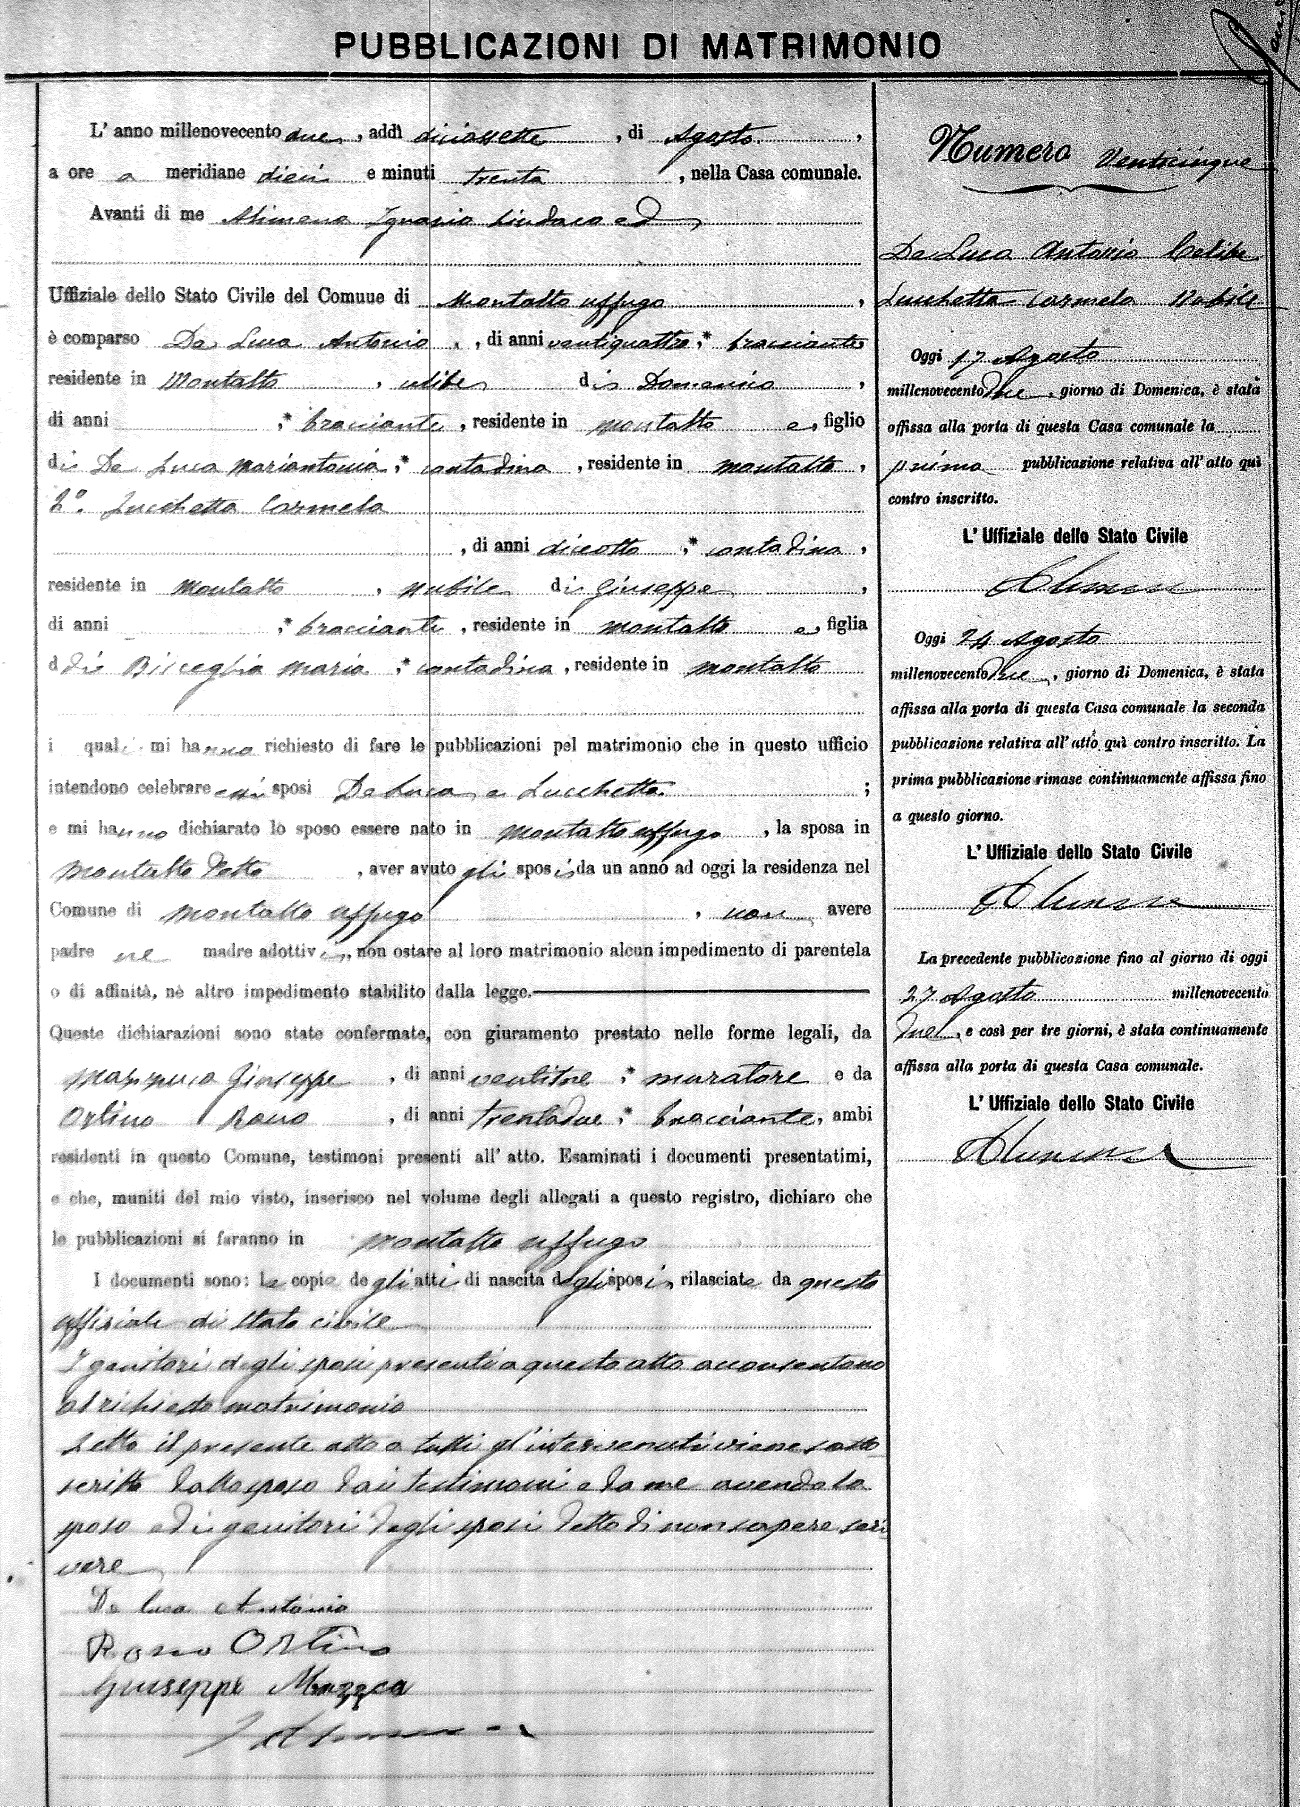 PUBBLICAZIONI DI MATRIMONIO
L' anno millenovecento due, addì diciassette, di Agosto,
a ore a meridiane dieci e minuti trenta, nella Casa comunale.
Avanti di me Alimena Ignazio Sindaco ed
Uffiziale dello Stato Civile del Comune di Montalto Uffugo,
è comparso De Luca Antonio, di anni ventiquattro, * bracciante
residente in Montalto, celibe di Domenico,
di anni , * bracciante, residente in Montalto e, figlio
di De Luca Mariantonia, * contadina, residente in Montalto,
2º. Lucchetta Carmela
, di anni diciotto, * contadina,
residente in Montalto, nubile di Giuseppe,
di anni , * bracciante, residente in Montalto e, figlia
d di Bisceglia Maria, * contadina, residente in Montalto
i quali mi hanno richiesto di fare le pubblicazioni pel matrimonio che in questo ufficio
intendono celebrare essi sposi De Luca e Lucchetta ;
e mi hanno dichiarato lo sposo essere nato in Montalto Uffugo, la sposa in
Montalto detto, aver avuto gli sposi da un anno ad oggi la residenza nel
Comune di Montalto Uffugo, non avere
padre ne madre adottivi, non ostare al loro matrimonio alcun impedimento di parentela
o di affinità, nè altro impedimento stabilito dalla legge.
Queste dichiarazioni sono state confermate, con giuramento prestato nelle forme legali, da
Mazzuca Giuseppe, di anni ventitre, * muratore e da
Ortino Rano, di anni trentadue, * bracciante, ambi
residenti in questo Comune, testimoni presenti all' atto. Esaminati i documenti presentatimi,
e che, muniti del mio visto, inserisco nel volume degli allegati a questo registro, dichiaro che
le pubblicazioni si faranno in Montalto Uffugo
I documenti sono: Le copie degli atti di nascita degli sposi, rilasciate da questo
uffiziale di stato civile
I genitori degli sposi presenti a questo atto acconsentono
al richiesto matrimonio
Letto il presente atto a tutti gl'intervenuti viene sotto
scritto dallo sposo dai testimoni e da me avendo la
sposa ed i genitori degli sposi detto di non sapere scri
vere
De Luca Antonio
Ortino
Giuseppe Mazzca
Numero Venticinque
De Luca Antonio Celibe
Lucchetta Carmela Nubile
Oggi 17 Agosto
millenovecento due, giorno di Domenica, è stata
affissa alla porta di questa Casa comunale la
prima pubblicazione relativa all' atto quì
contro inscritto.
L' Uffiziale dello Stato Civile
Alimena
Oggi 24 Agosto
millenovecento due, giorno di Domenica, è stata
affissa alla porta di questa Casa comunale la seconda
pubblicazione relativa all' atto quì contro inscritto. La
prima pubblicazione rimase continuamente affissa fino
a questo giorno.
L' Uffiziale dello Stato Civile
Alimena
La precedente pubblicazione fino al giorno di oggi
27 Agosto millenovecento
due, e così per tre giorni, è stata continuamente
affissa alla porta di questa Casa comunale.
L' Uffiziale dello Stato Civile
Alimena